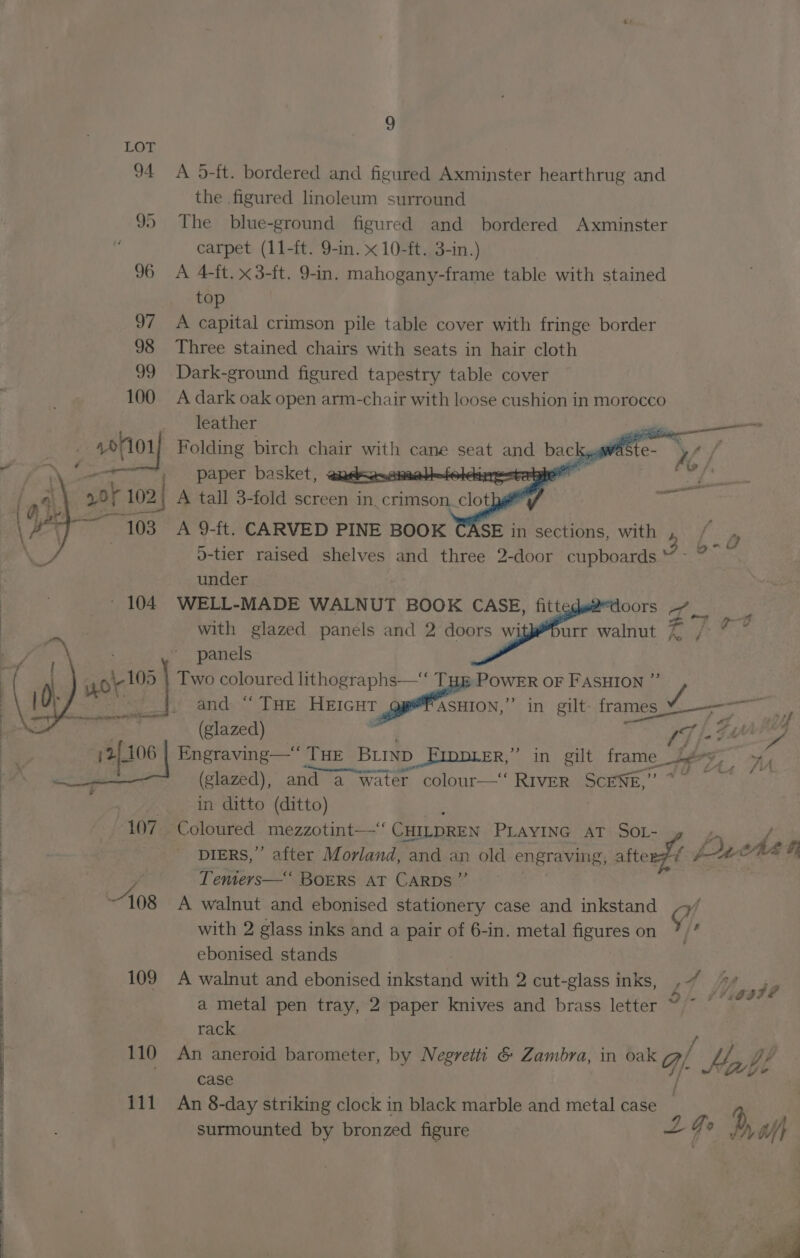 9
LOT
94 A 5-ft. bordered and figured Axminster hearthrug and
the figured linoleum surround
95 The blue-ground figured and bordered Axminster
carpet (11-ft. 9-in. × 10-ft. 3-in.)
96 A 4-ft. × 3-ft. 9-in. mahogany-frame table with stained
top
97 A capital crimson pile table cover with fringe border
98 Three stained chairs with seats in hair cloth
99 Dark-ground figured tapestry table cover
100 A dark oak open arm-chair with loose cushion in morocco
leather
101 Folding birch chair with cane seat and back, waste-
paper basket, and a small folding table
102 A tall 3-fold screen in crimson cloth
103 A 9-ft. CARVED PINE BOOK CASE in sections, with
5-tier raised shelves and three 2-door cupboards
under
104 WELL-MADE WALNUT BOOK CASE, fitted 2 doors
with glazed panels and 2 doors with burr walnut
panels
105 Two coloured lithographs—“ THE POWER OF FASHION ”
and “ THE HEIGHT OF FASHION,” in gilt frames
(glazed)
106 Engraving—“ THE BLIND FIDDLER,” in gilt frame
(glazed), and a water colour—“ RIVER SCENE,”
in ditto (ditto)
107 Coloured mezzotint—“ CHILDREN PLAYING AT SOL-
DIERS,” after Morland, and an old engraving, after
Teniers—“ BOERS AT CARDS ”
108 A walnut and ebonised stationery case and inkstand
with 2 glass inks and a pair of 6-in. metal figures on
ebonised stands
109 A walnut and ebonised inkstand with 2 cut-glass inks,
a metal pen tray, 2 paper knives and brass letter
rack
110 An aneroid barometer, by Negretti & Zambra, in oak
case
111 An 8-day striking clock in black marble and metal case
surmounted by bronzed figure